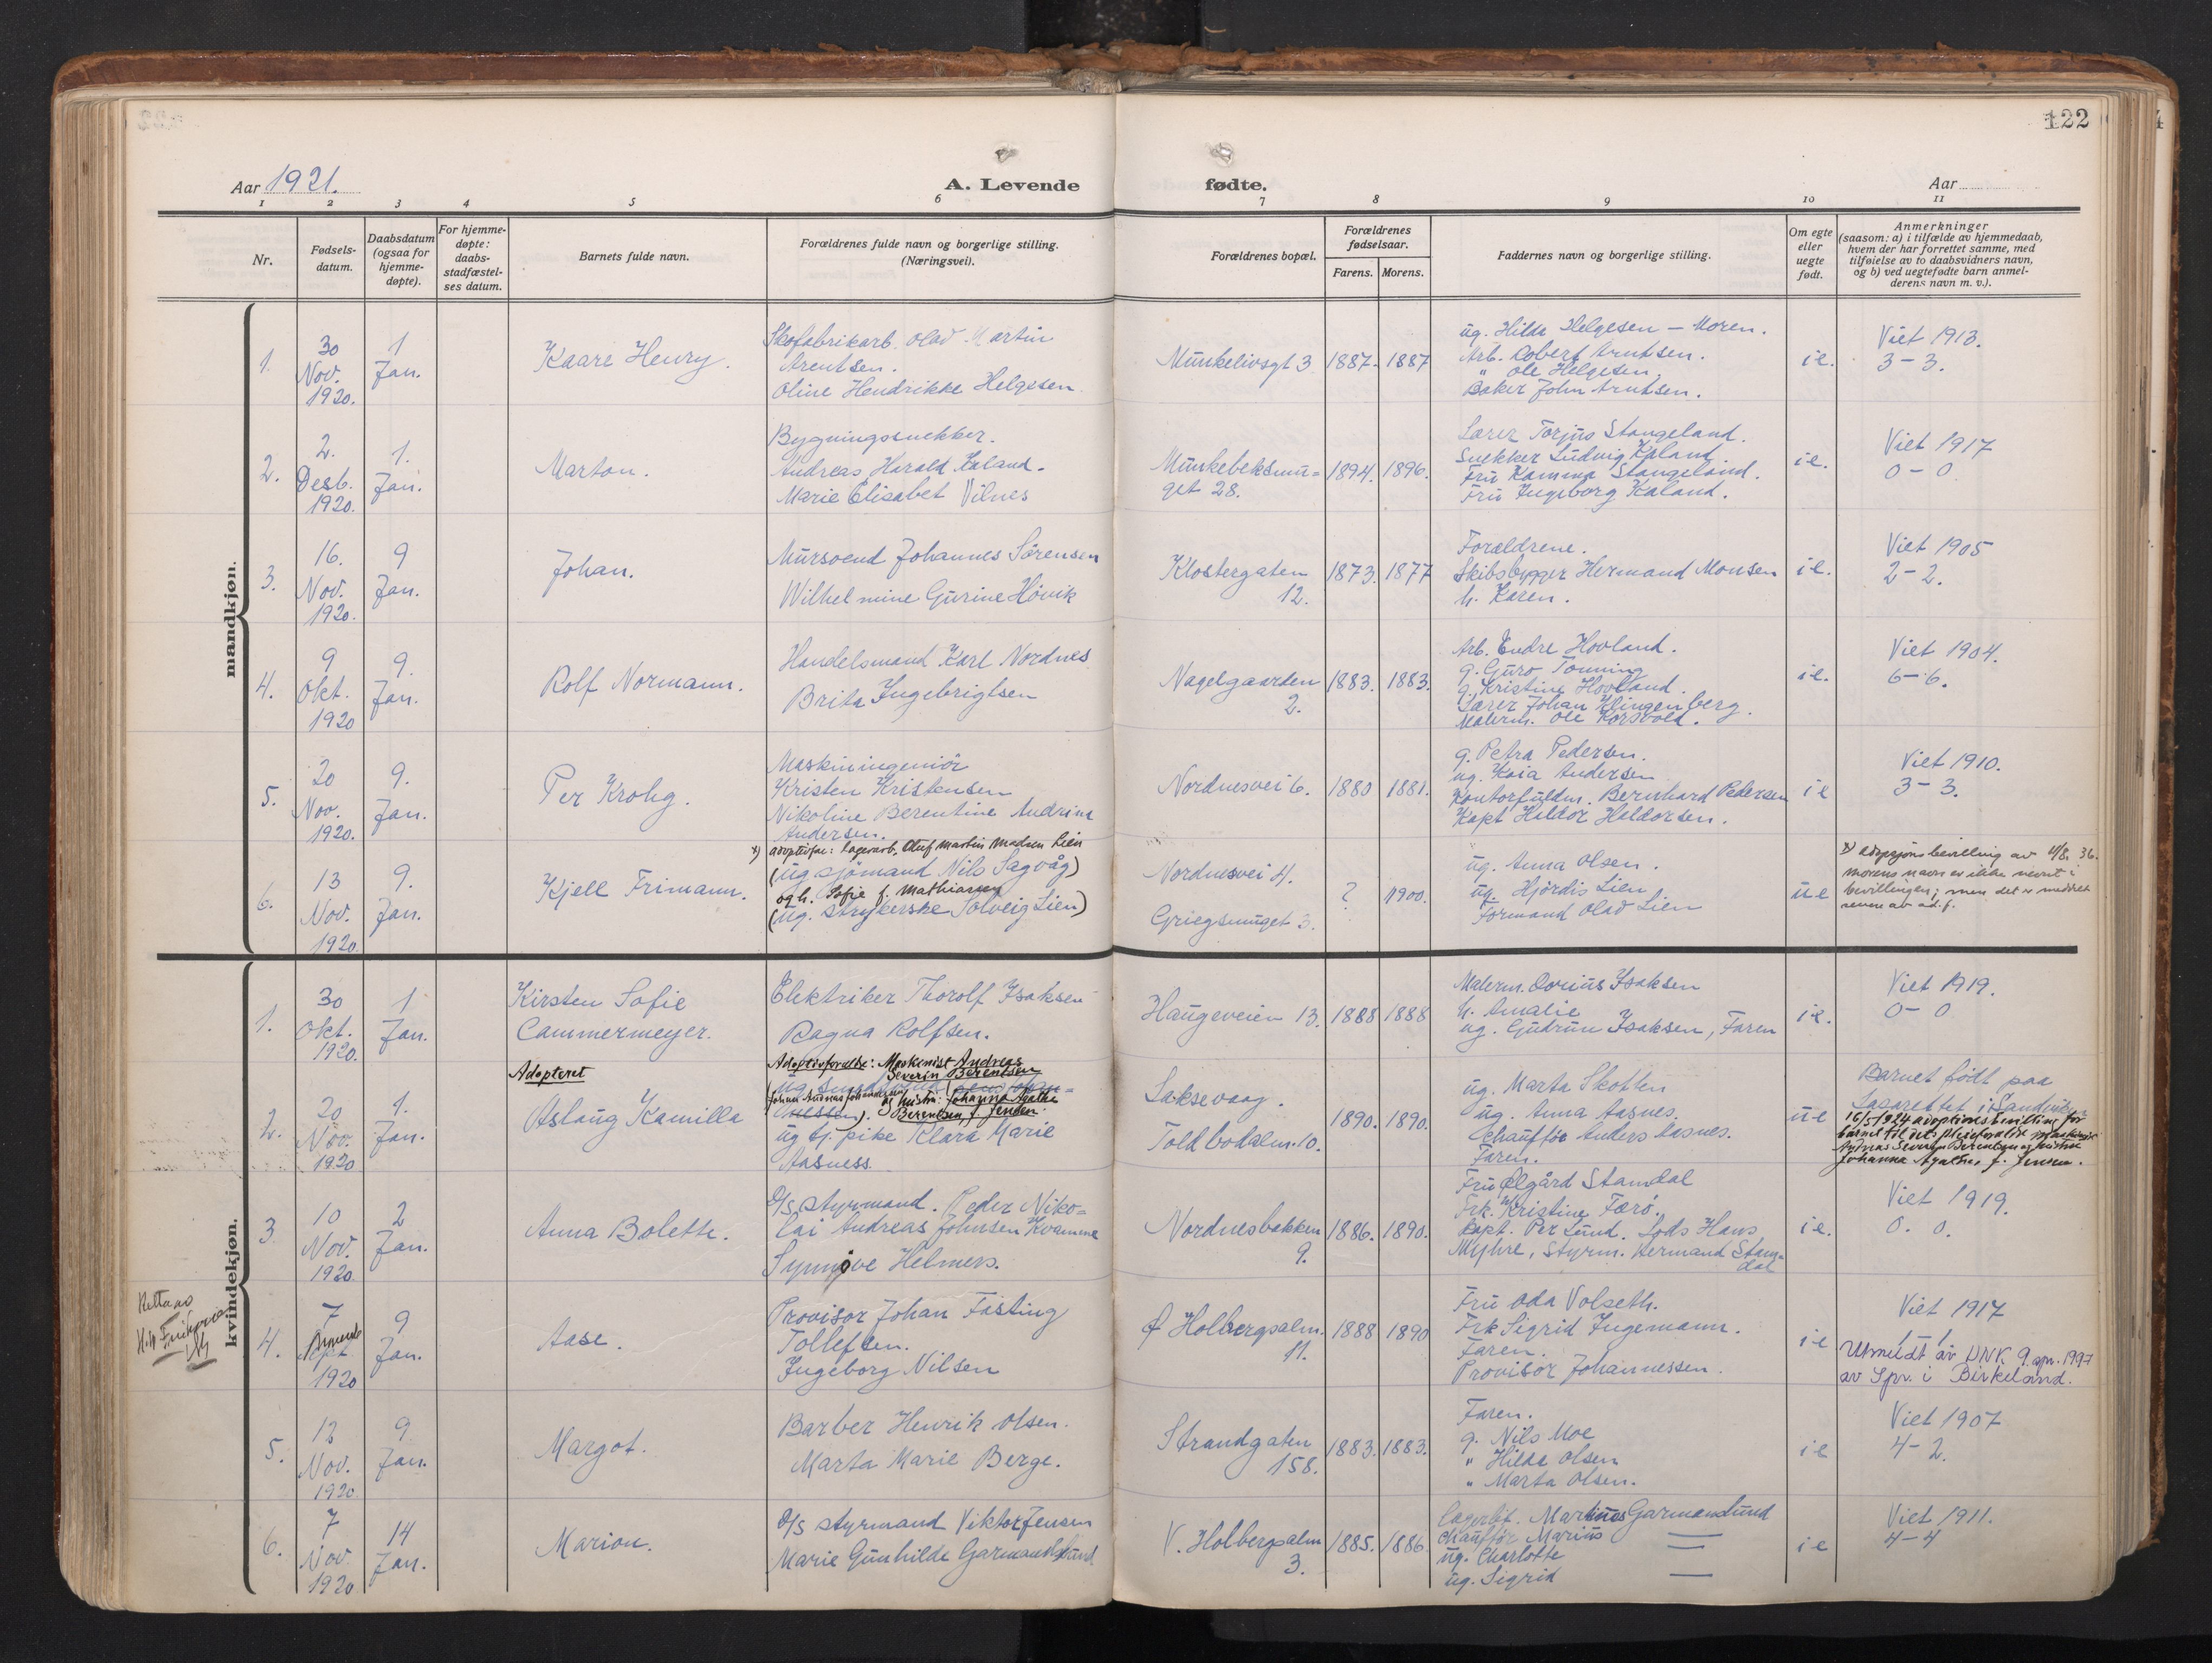 122
Aar 1921.
A. Levende fødte.
Aar
1 2 3 4 5 6 7 8 9 10 11
Nr.
Fødsels-
datum.
Daabsdatum
(ogsaa for
hjemme-
døpte).
For hjemme-
døpte:
daabs-
stadfæstel-
ses datum.
Barnets fulde navn.
Forældrenes fulde navn og borgerlige stilling.
(Næringsvei).
Forældrenes bopæl.
Forældrenes
fødselsaar.
Farens. Morens.
Faddernes navn og borgerlige stilling.
Om egte
eller
uegte
født.
Anmerkninger
(saasom: a) i tilfælde av hjemmedaab,
hvem der har forrettet samme, med
tilføielse av to daabsvidners navn,
og b) ved uegtefødte barn anmel-
derens navn m. v.).
mandkjøn.
1.
30
Nov.
1920.
1
Jan.
Kaare Henry.
Skofabrikarb. Olav Martin
Arentsen.
Oline Hendrikke Helgesen
Munkelivsgt 3
1887.
1887
ug. Hilda Helgesen — Moren.
Arb. Robert Arntsen.
" Ole Helgesen
Baker John Arntsen.
ie.
Viet 1913.
3–3.
2.
2.
Desb.
1920.
1.
Jan.
Marton.
Bygningssnekker.
Andreas Harald Kaland.
Marie Elisabet Vilnes
Munkebeksmu=
get 28.
1894.
1896.
Lærer Torjus Stangeland.
Snekker Ludvig Kaland
Fru Kamma Stangeland.
Fru Ingeborg Kaland.
ie.
Viet 1917
0–0
3.
16.
Nov.
1920.
9
Jan.
Johan.
Mursvend Johannes Sørensen
Wilhelmine Gurine Høvik
Klostergaten
12.
1873.
1877
Forældrene.
Skibsbygger Hermand Monsen
h. Karen.
ie.
Viet 1905
2–2.
4.
9
Okt.
1920
9.
Jan.
Rolf Normann.
Handelsmand Karl Nordnes
Brita Ingebrigtsen
Nagelgaarden
2.
1883.
1883.
Arb. Endre Hovland.
g. Guro Tonning
g. Kristine Hovland.
Lærer Johan Klingenberg.
Malerm. Ole Korsvold.
ie.
Viet 1904.
6–6.
5.
20
Nov.
1920.
9.
Jan.
Per Krohg.
Maskiningeniør
Kristen Kristensen
Nikoline Berentine Andrina
Andersen.
Nordnesvei 6.
1880
1881.
g. Petra Pedersen.
ug. Kaia Andersen
Kontorfuldm. Bernhard Pedersen
Kapt Haldor Haldorsen.
ie
Viet 1910.
3–3.
6.
13
Nov.
1920
9.
Jan.
Kjell Frimann.
x) adoptivfor: Lagerarb. Oluf Martin Madsen Lien
(ug sjømand Nils Sagvåg)
og h. Sofie f. Mathiassen
(ug. strykerske Solveig Lien)
Nordnesvei 4.
Griegsmuget 3.
?
1900.
ug. Anna Olsen.
ug. Hjördis Lien
Formand Olav Lien
ue
x) adopsjonsbevilling av 4/8. 36.
morens navn er ikke nevnt i
bevillingen; men det er meddelt
senere av ad.f.
kvindekjøn.
1.
30
Okt.
1920.
1
Jan.
Kirsten Sofie
Cammermeyer.
Elektriker Thorolf Isaksen
Ragna Rolfsen.
Haugeveien 13.
1888
1888
Malerm. Dorius Isaksen
h. Amalie
ug. Gudrun Isaksen, Faren
ie.
Viet 1919.
0–0
2.
20
Nov.
1920
1.
Jan.
Adopteret
Aslaug Kamilla
Adoptivforældre: Maskinist Andreas
Severin Berentsen
Johan Andreas Johannesen
og hustru: Johanna Agathe
Berentsen, f. Jensen.
ug tj. pike Klara Marie
Aasness.
Laksevaag.
Toldbodalm. 10.
1890.
1890.
ug. Marta Skotten
ug. Anna Aasnes.
Chauffør Anders Aasnes.
Faren.
ue
Barnet født paa
Lasarettet i Sandviken
16/5 1924 adoptionsbevilling for
barnet til dets pleieforældre maskinist
Andreas Severin Berentsen og hustru
Johanna Agathe, f. Jensen.
3
10
Nov.
1920
2
Jan.
Anna Bolette.
D/S styrmand. Peder Niko=
lai Andreas Johnsen Kvamme
Synnøve Helmers.
Nordnesbakken
9.
1886.
1890.
Fru Ølgård Stamdal
Frk. Kristine Færø.
Kapt. Per Lund. Lods Hans
Myhre, Styrm. Hermand Stam=
dal
ie.
Viet 1919.
0. 0.
Rettaas
4.
7
1920
9
Jan.
Aase.
Provisor Johan Fasting
Tollefsen.
Ingeborg Nilsen
Ø Holbergsalm.
11.
1888
1890
Fru Oda Volseth.
Frk Sigrid Ingemann.
Faren.
Provisor Johannessen.
ie
Viet 1917
1. 1.
Utmeldt av DNK 9. apr. 1997
av Spr. i Birkeland.
5.
12
Nov.
1920
9
Jan.
Margot.
Barber Henrik Olsen.
Marta Marie Berge.
Strandgaten
158.
1883.
1883.
Faren.
g. Nils Moe
" Hilda Olsen
" Marta Olsen.
ie
Viet 1907
4–2.
6.
7
Nov
1920
14
Jan.
Marion.
D/S styrmand Viktor Jensen
Marie Gunhilde Garmanslund.
V. Holbergsalm
3.
1885.
1886.
Lagerbt. Martinus Garmanslund
Chauffør Marius —
ug. Charlotte —
ug. Sigrid —
ie
Viet 1911.
4–4